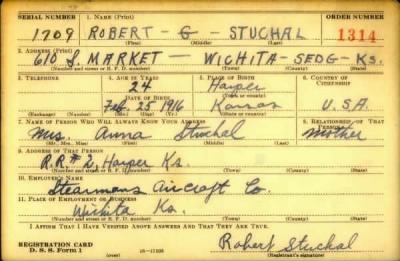 SERIAL NUMBER 1. NAME (Print) ORDER NUMBER
1709 ROBERT - G - STUCHAL 1314
(First) (Middle) (Last)
2. ADDRESS (Print)
610 S. MARKET - WICHITA - SEDG - KS.
(Number and street or R. F. D. number) (Town) (County) (State)
3. TELEPHONE 4. AGE IN YEARS 5. PLACE OF BIRTH 6. COUNTRY OF CITIZENSHIP
24 Harper
DATE OF BIRTH (Town or county)
Feb. 25 1916 Kansas U.S.A.
(Exchange) (Number) (Mo.) (Day) (Yr.) (State or country)
7. NAME OF PERSON WHO WILL ALWAYS KNOW YOUR ADDRESS 8. RELATIONSHIP OF THAT PERSON
Mrs. Anna Stuchal Mother
(Mr., Mrs., Miss) (First) (Middle) (Last)
9. ADDRESS OF THAT PERSON
R.R.# 2, Harper Ks.
(Number and street or R. F. D. number) (Town) (County) (State)
10. EMPLOYER'S NAME
Stearmans Aircraft Co.
11. PLACE OF EMPLOYMENT OR BUSINESS
Wichita Ks.
(Number and street or R. F. D. number) (Town) (County) (State)
I AFFIRM THAT I HAVE VERIFIED ABOVE ANSWERS AND THAT THEY ARE TRUE.
REGISTRATION CARD Robert Stuchal
D. S. S. Form 1 (over) (Registrant's signature)